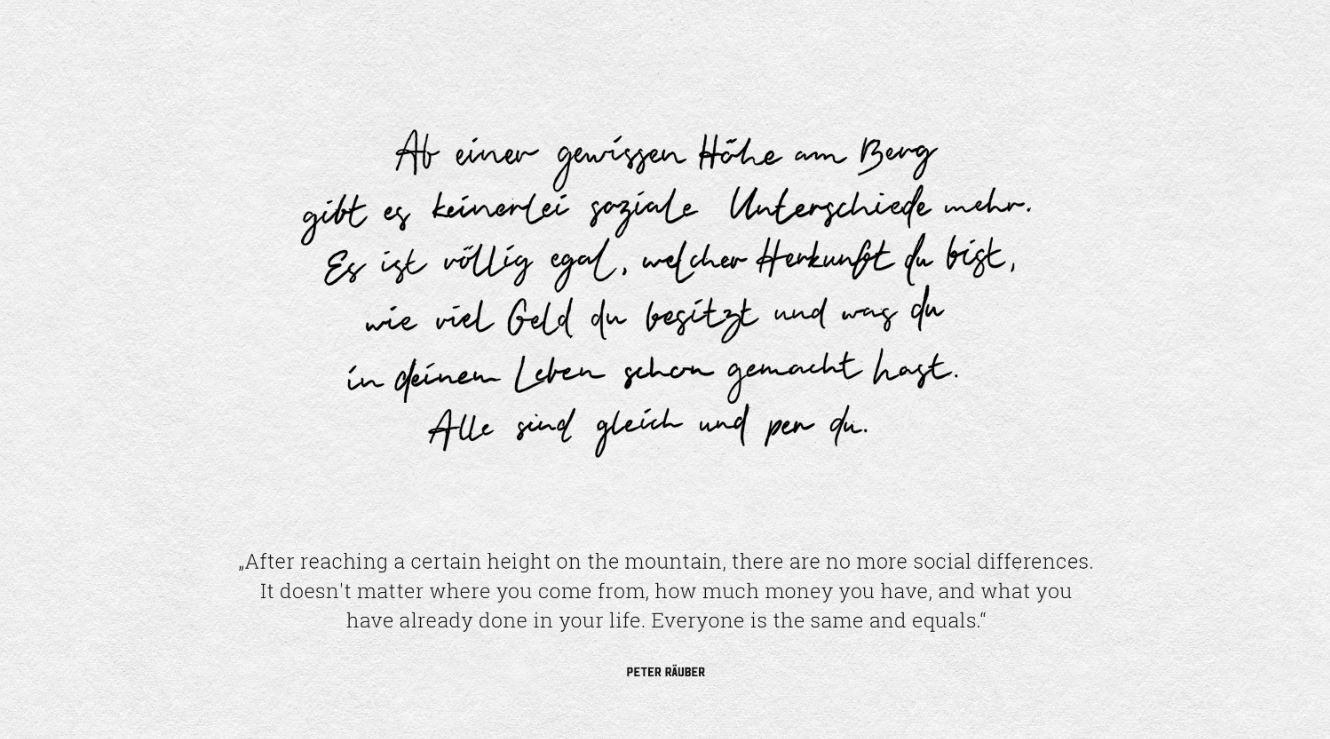 Ab einer gewissen Höhe am Berg
gibt es keinerlei soziale Unterschiede mehr.
Es ist völlig egal, welcher Herkunft du bist,
wie viel Geld du besitzt und was du
in deinem Leben schon gemacht hast.
Alle sind gleich und per du.
„After reaching a certain height on the mountain, there are no more social differences.
It doesn't matter where you come from, how much money you have, and what you
have already done in your life. Everyone is the same and equals.“
PETER RÄUBER